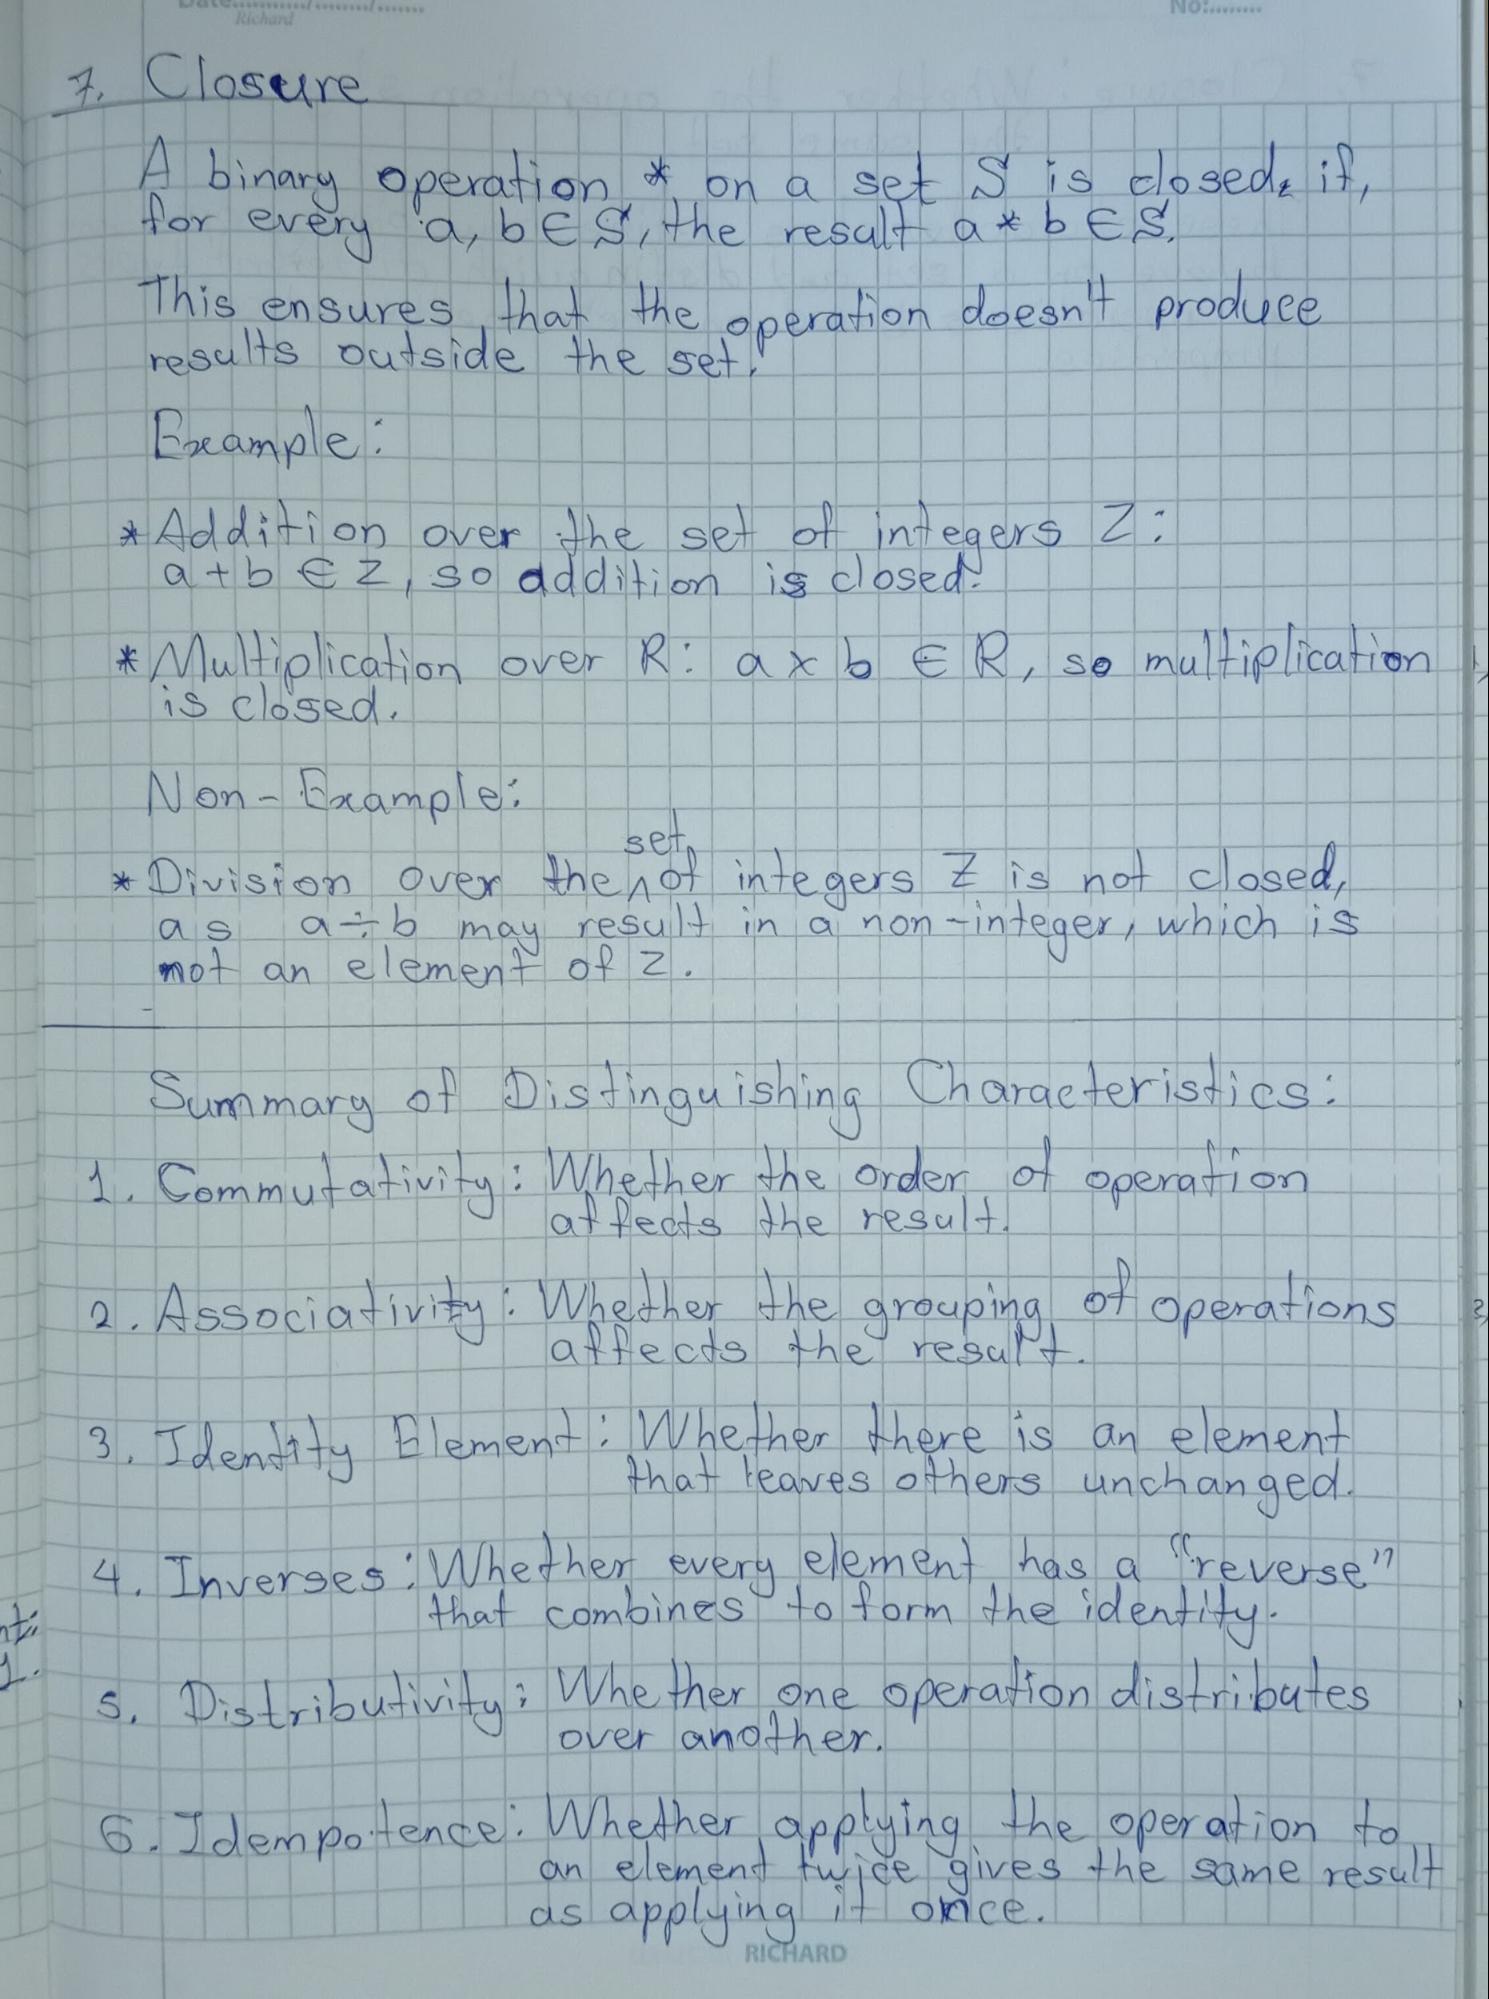 Date:............/............/.......
Richard
No:........
7. Closure
A binary operation * on a set S is closed, if,
for every a, b ∈ S, the result a * b ∈ S.
This ensures that the operation doesn't produce
results outside the set.
Example:
* Addition over the set of integers Z:
a + b ∈ Z, so addition is closed.
* Multiplication over R: a × b ∈ R, so multiplication
is closed.
Non-Example:
set
* Division over the ^ of integers Z is not closed,
as a ÷ b may result in a non-integer, which is
not an element of Z.
Summary of Distinguishing Characteristics:
1. Commutativity: Whether the order of operation
affects the result.
2. Associativity: Whether the grouping of operations
affects the result.
3. Identity Element: Whether there is an element
that leaves others unchanged.
4. Inverses: Whether every element has a "reverse"
that combines to form the identity.
5. Distributivity: Whether one operation distributes
over another.
6. Idempotence: Whether applying the operation to
an element twice gives the same result
as applying it once.
RICHARD